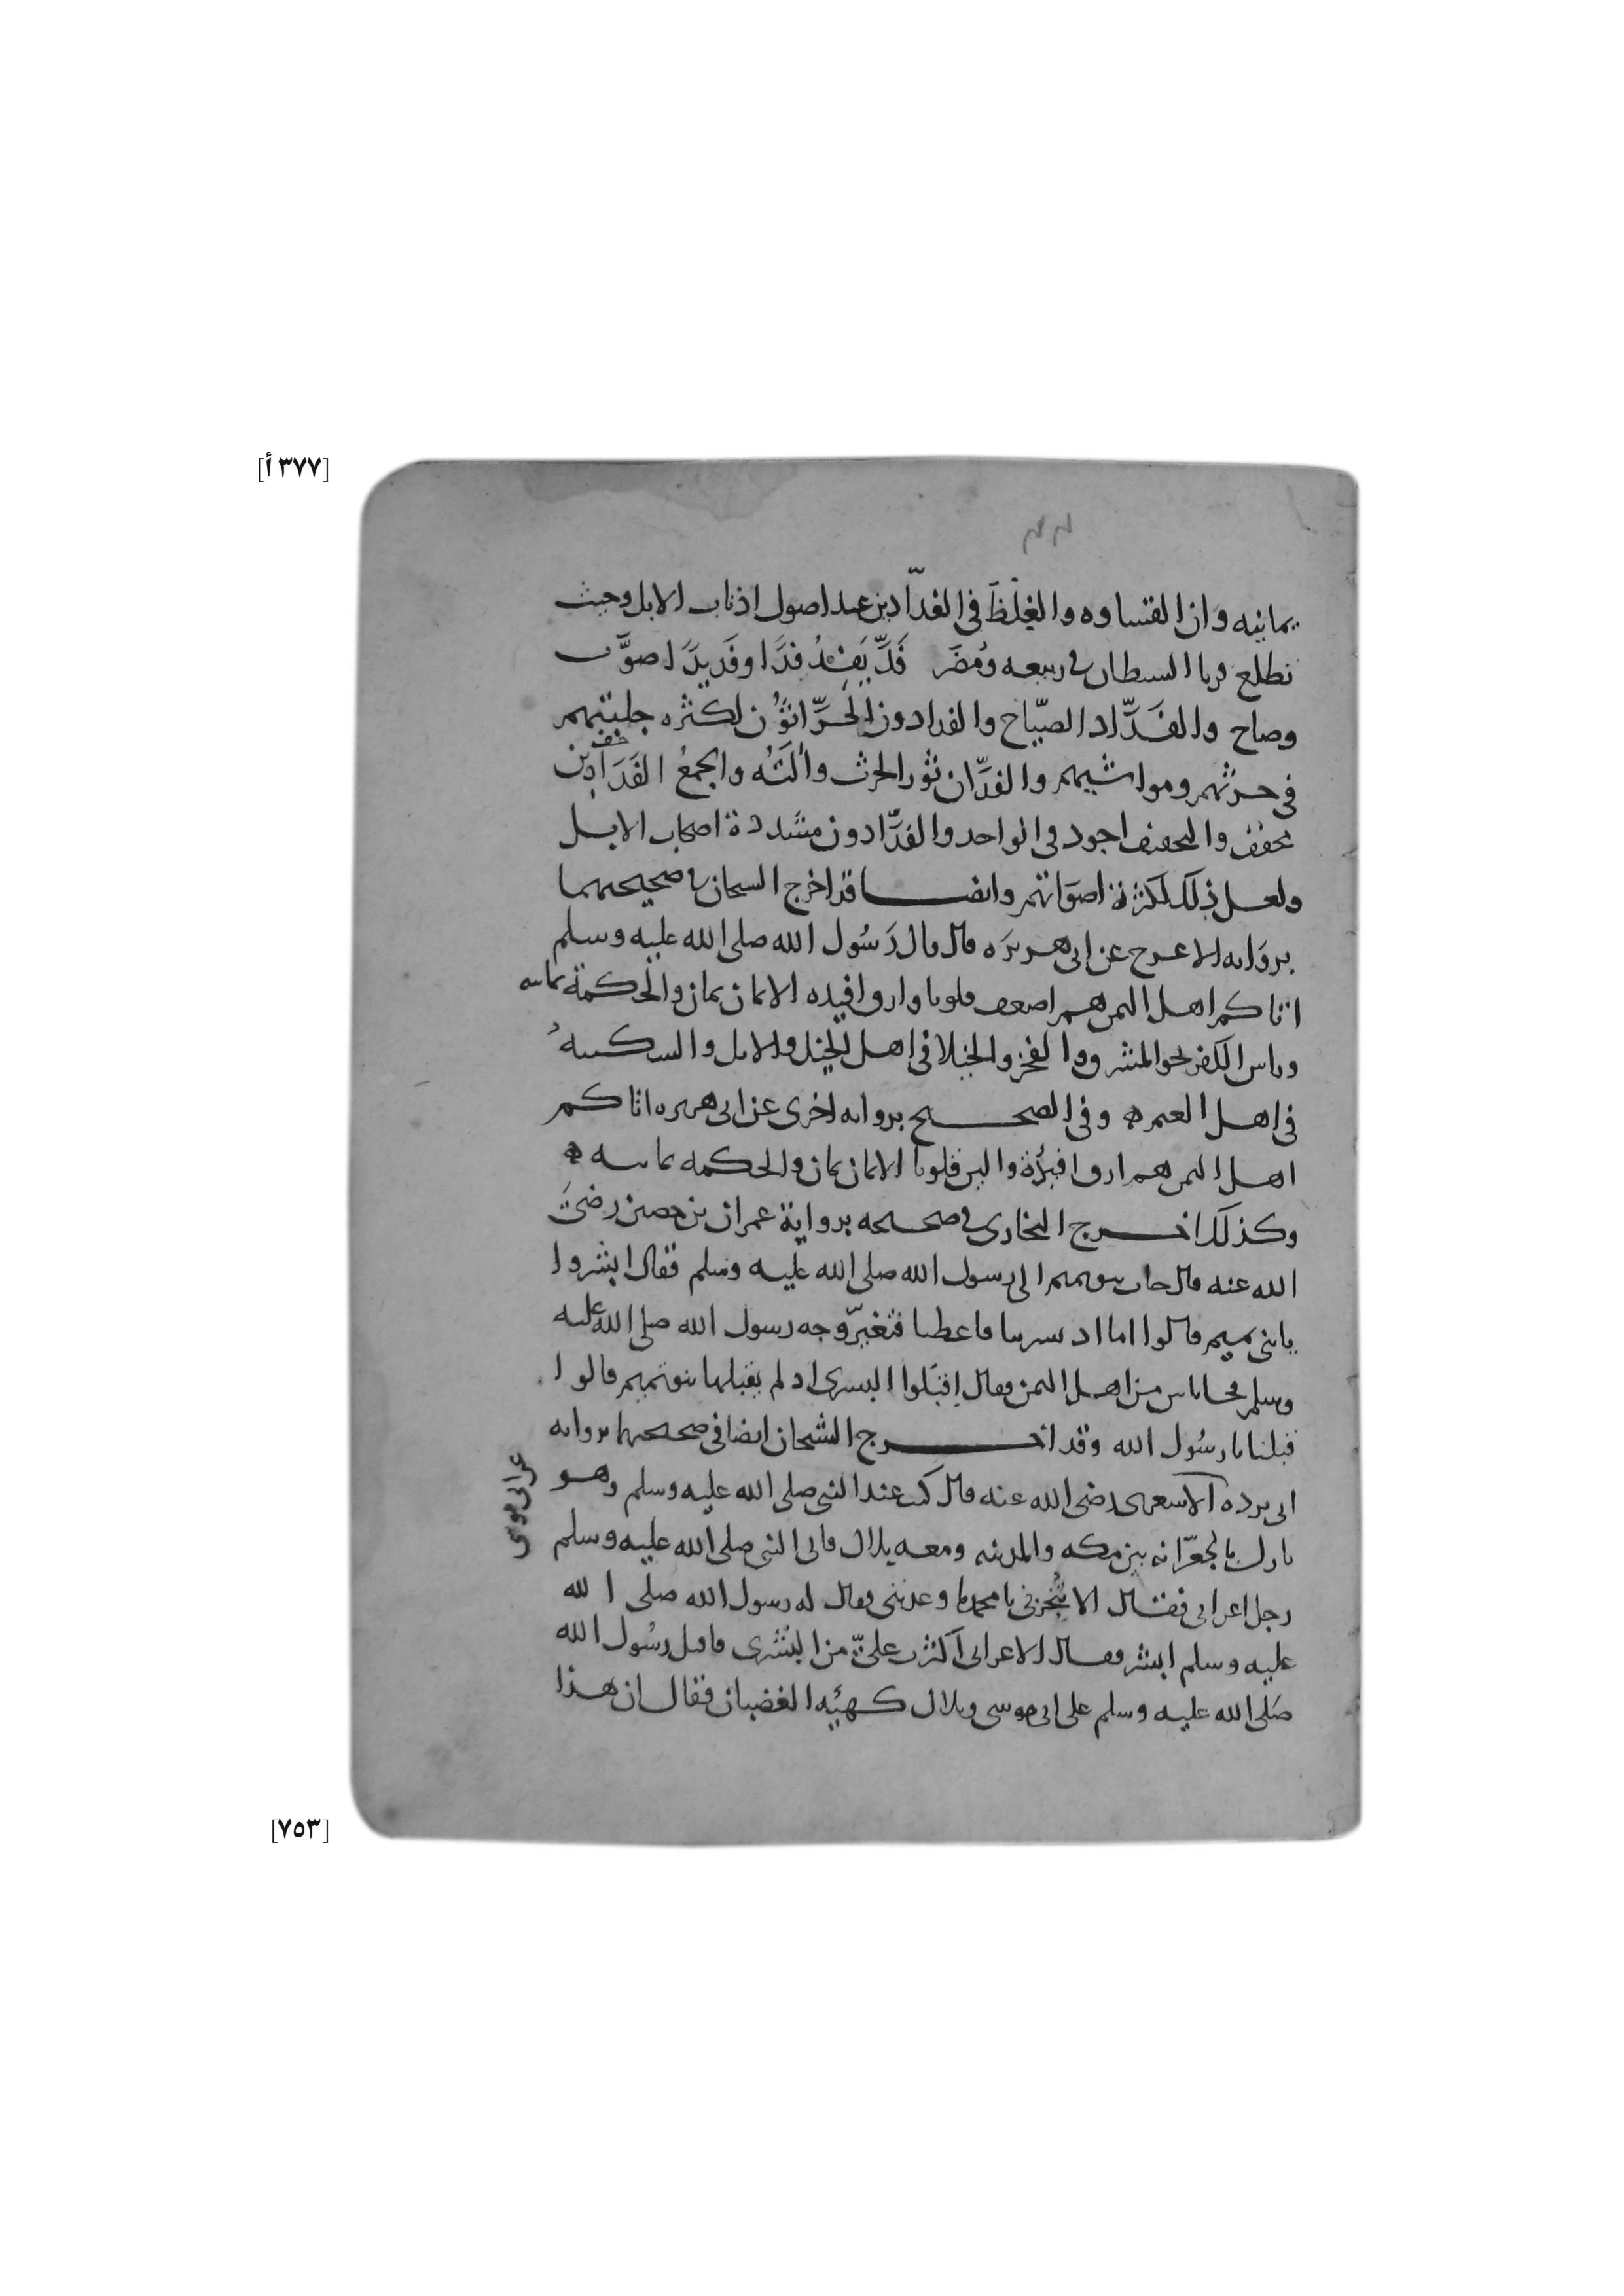 [٣٧٧ أ]
يمانيه وان القساوه والغِلَظَ في الفدّادين عند اصول اذناب الابل وحيث
تطلع قرنا الشيطان في ربيعه ومُضَر فَدَّ يَفِدُ فدَّا وفَدِيدَّا صوَّت
وصاح والفَدَّاد الصيّاح والفدادون الحرَّاثوُن لكثره جلبتهم
في حرثهم ومواشيهم والفدَّان ثور الحرث وآلتَه والجمعُ الفَدَادِين
خف
مخفف والمخفف اجود في الواحد والفدَّادون مشددة اصحاب الابل
ولعل ذلك لكثرة اصَوَاتهم وايضا قد اخرج الشيخان في صحيحهما
بروَايه الاعرج عن ابى هريرَه قال قال رَسُول الله صلى الله عليه وسلم
اتاكم اهل اليمن هم اضعف قلوبا وارق افيده الايمان يمان والحكمة يمانيه
وراس الكفر نحو المشرق والفخر والخيلا في اهل الخيل والابل والسكينهُ
في اهل الغنم ه وفي الصحيح بروايه اخرى عن ابى هريره اتاكم
اهل اليمن هم ارق افيُدَة والين قلوبا الايمان يمان والحكمه يمانيه ه
وكذلك اخرج البخارى في صحيحه برواية عمران بن حصين رضىَ
الله عنه قال جات بنو تميم الى رسول الله صلى الله عليه وسلم فقال ابشروا
يا بنى تميم قالوا اما اذ بشرتنا فاعطنا فتغيَّر وجه رسول الله صلى الله عليه
وسلم فجا ناس من اهل اليمن فقال اقبَلوا البشرى اذ لم يقبلها بنو تميم قالوا
قبلنا يا رسُول الله وقد اخرج الشيخان ايضا في صحيحهما بروايه
ابى برده الاشعرى رضى الله عنه قال كنت عند النبى صلى الله عليه وسلم وهو
عن ابى موسى
نازل بالجعرّانه بين مكه والمدينه ومعه بلال فاتى النبى صلى الله عليه وسلم
رجل اعرابى فقال الا تُنجز لى يا محمد ما وعدتنى فقال له رسول الله صلى الله
عليه وسلم ابشر فقال الاعرابى اكثرت علىّ من البُشرى فاقبل رسُول الله
صَلى الله عليه وسلم على ابى موسى وبلال كهيئه الغضبان فقال ان هذا
[٧٥٣]